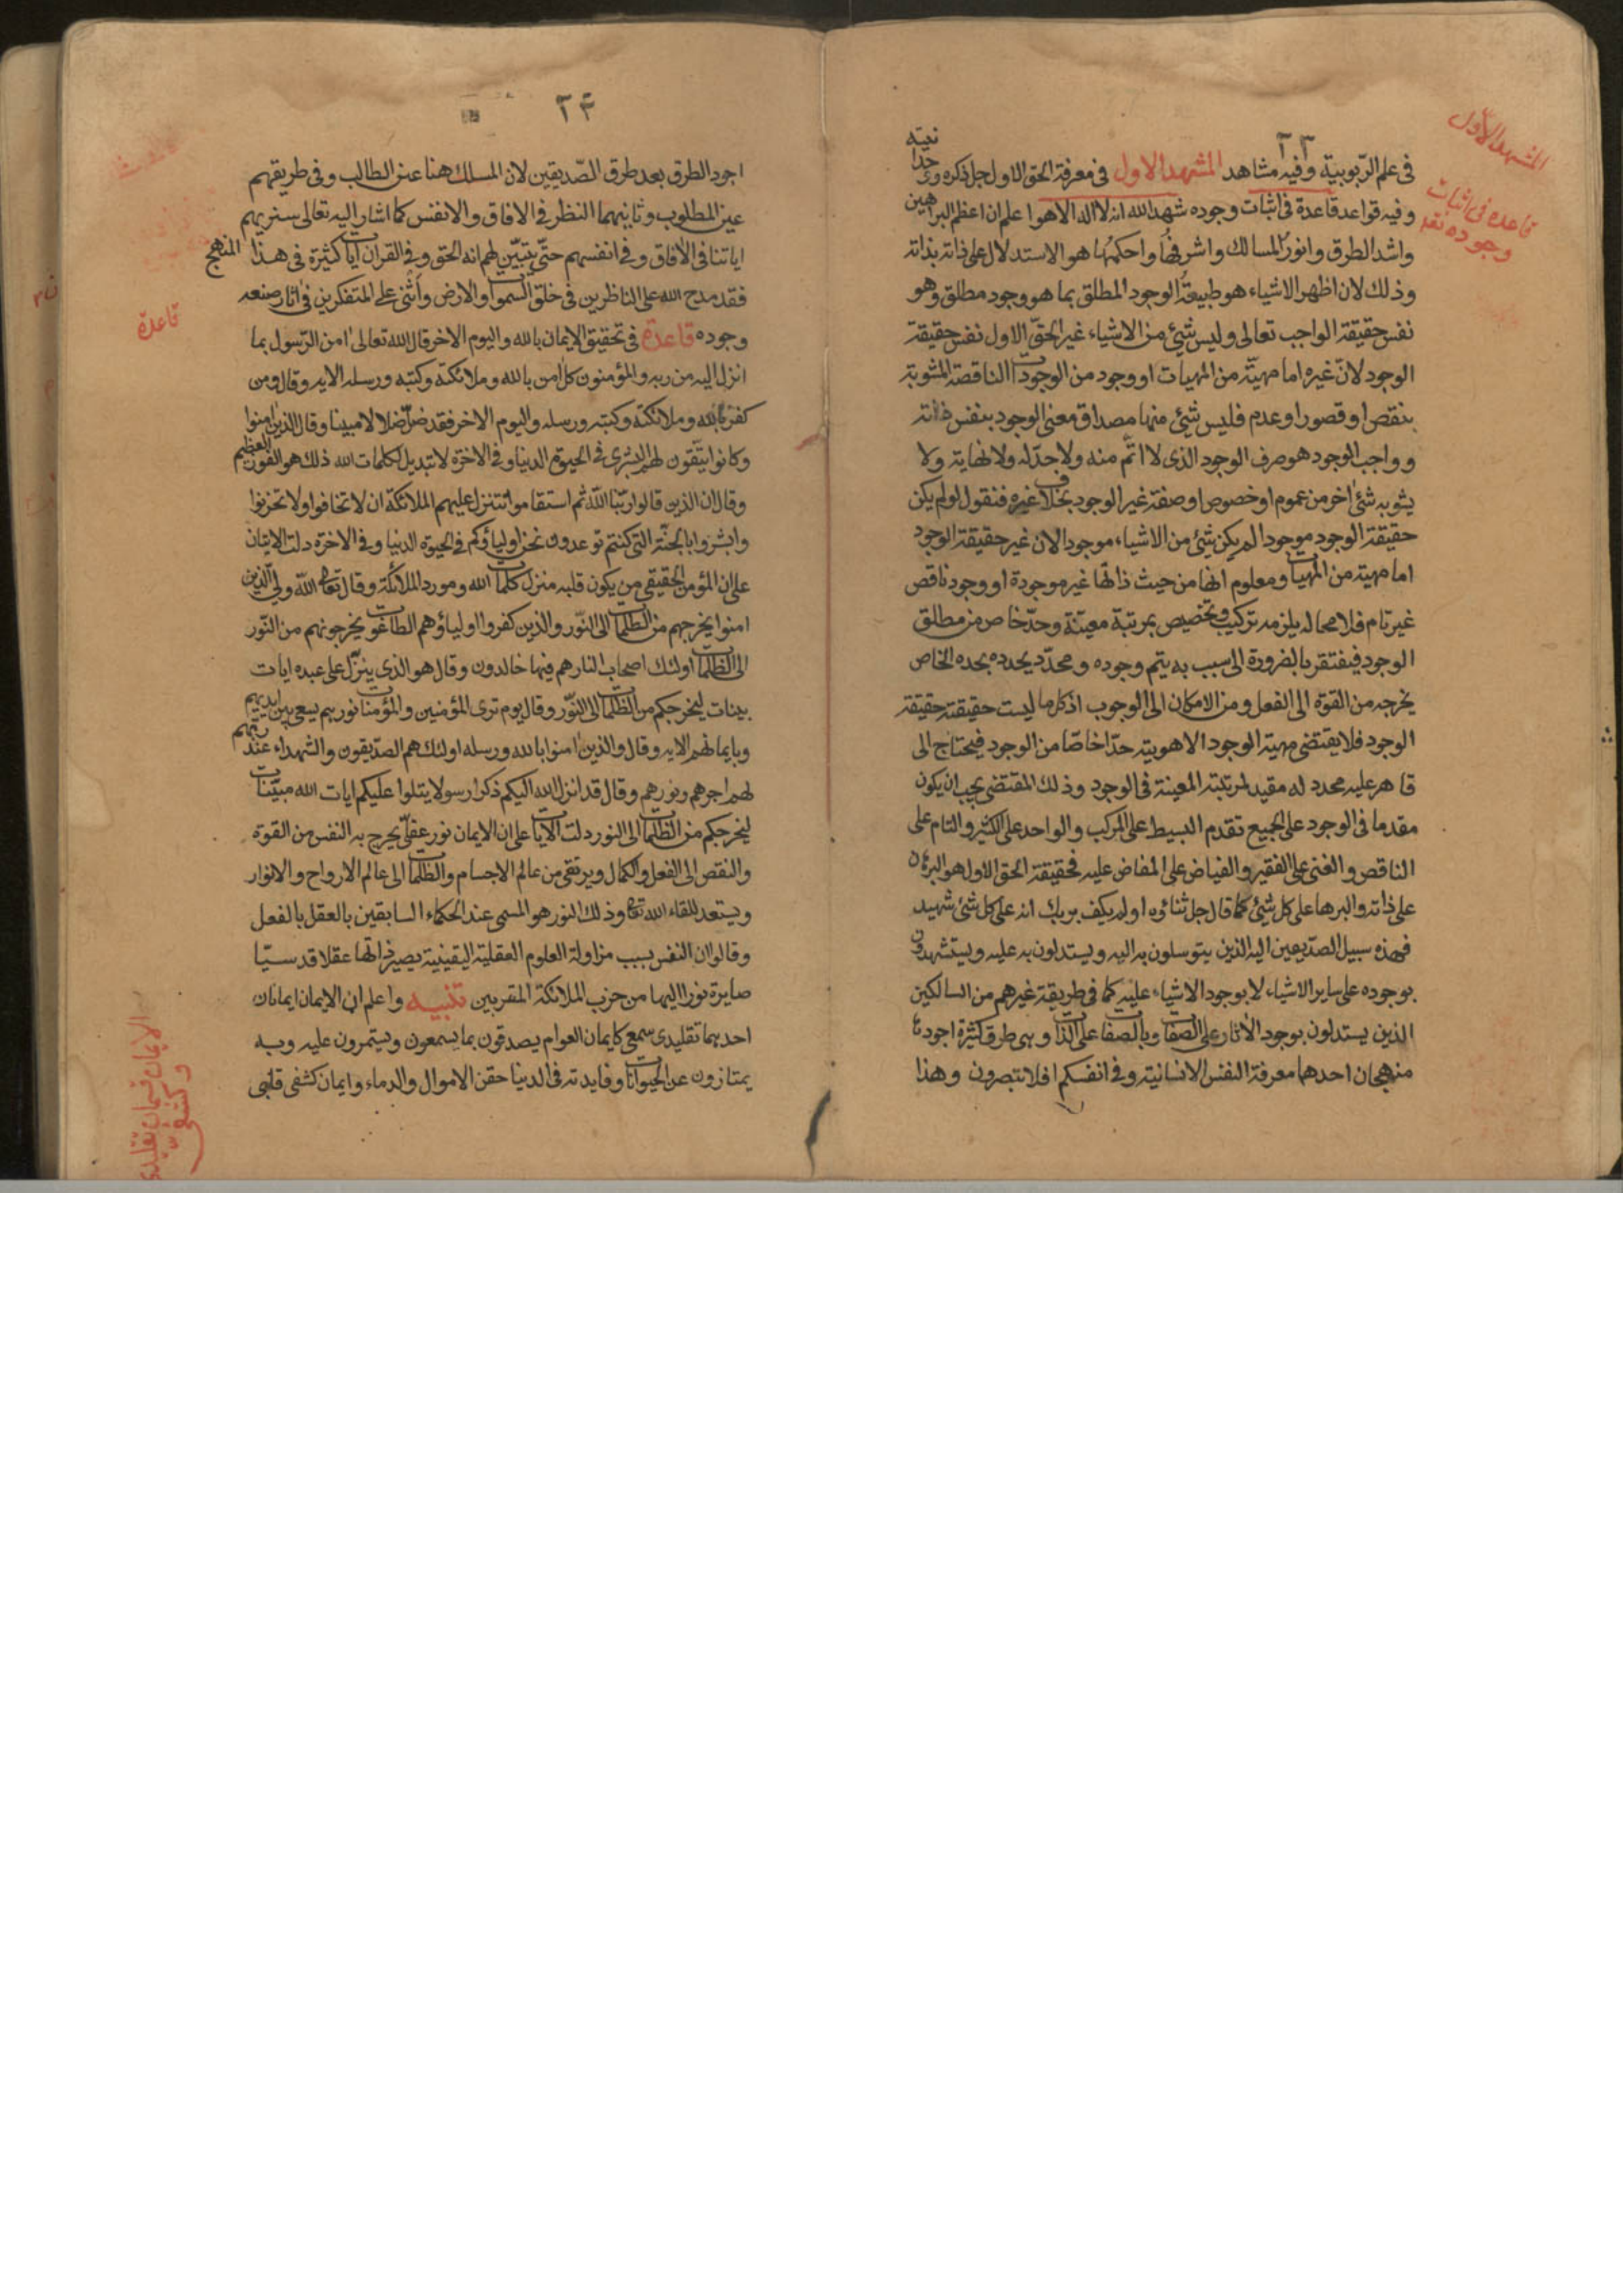 المشهد الاول
قاعده فى اثبات
وجوده تعه
٢٣
فى علم الربوبية وفيه مشاهد المشهد الاول فى معرفة الحق الاول جل ذكره وحدانيته
وفيه قواعد قاعدة فى اثبات وجوده شهد الله انه لا اله الا هو اعلم ان اعظم البراهين
واشد الطرق وانور المسالك واشرفها واحكمها هو الاستدلال على ذاته بذاته
وذلك لان اظهر الاشياء هو طبيعة الوجود المطلق بما هو وجود مطلق وهو
نفس حقيقة الواجب تعالى وليس شيئ من الاشياء غير الحق الاول نفس حقيقة
الوجود لان غيره اما مهية من المهيات او وجود من الوجودات الناقصة المشوبة
بنقص او قصور او عدم فليس شيئ منها مصداق معنى الوجود بنفس ذاته
وواجب الوجود هو صرف الوجود الذى لا اتم منه ولا حد له ولا نهاية ولا
يشوبه شئ اخر من عموم او خصوص او صفة غير الوجود بخلاف غيره فنقول لو لم يكن
حقيقة الوجود موجودا لم يكن شيئ من الاشياء موجودا لان غير حقيقة الوجود
اما مهية من المهيات ومعلوم انها من حيث ذاتها غير موجودة او وجود ناقص
غير تام فلا محالة يلزمه تركيب وتخصيص بمرتبة معينة وحد خاص من مطلق
الوجود فيفتقر بالضرورة الى سبب به يتم وجوده ومحدد يحدده بحده الخاص
يخرجه من القوة الى الفعل ومن الامكان الى الوجوب اذ كل ما ليست حقيقته حقيقة
الوجود فلا يقتضى مهيته الوجود الا هويته حدا خاصا من الوجود فيحتاج الى
قاهر عليه محدد له مقيد لمرتبته المعينة فى الوجود وذلك المقتضى يجب ان يكون
مقدما فى الوجود على الجميع تقدم البسيط على المركب والواحد على الكثير والتام على
الناقص والغنى على الفقير والفياض على المفاض عليه فحقيقة الحق الاول هو البرهان
على ذاته والبرهان على كل شيئ كما قال جل ثناؤه اولم يكف بربك انه على كل شئ شهيد
فهذه سبيل الصديقين اليه الذين يتوسلون به اليه ويستدلون به عليه ويستشهدون
بوجوده على ساير الاشياء لا بوجود الاشياء عليه كما فى طريقة غيرهم من السالكين
الذين يستدلون بوجود الاثار على الصفات وبالصفات على الذات وهى طرق كثيرة اجودها
منهجان احدهما معرفة النفس الانسانية وفى انفسكم افلا تبصرون وهذا
٢٤
اجود الطرق بعد طرق الصديقين لان المسلك هنا عين الطالب وفى طريقهم
عين المطلوب وثانيهما النظر فى الافاق والانفس كما اشار اليه تعالى سنريهم
اياتنا فى الافاق وفى انفسهم حتى يتبين لهم انه الحق وفى القران ايات كثيرة فى هذا المنهج
فقد مدح الله على الناظرين فى خلق السموات والارض واثنى على المتفكرين فى اثار صنعه
وجوده قاعدة فى تحقيق الايمان بالله واليوم الاخر قال الله تعالى امن الرسول بما
انزل اليه من ربه والمؤمنون كل امن بالله وملائكته وكتبه ورسله الايه وقال ومن
كفر بالله وملائكته وكتبه ورسله واليوم الاخر فقد ضل ضلالا مبينا وقال الذين امنوا
وكانوا يتقون لهم البشرى فى الحيوة الدنيا وفى الاخرة لا تبديل لكلمات الله ذلك هو الفوز العظيم
وقال ان الذين قالوا ربنا الله ثم استقاموا تتنزل عليهم الملائكة ان لا تخافوا ولا تحزنوا
وابشروا بالجنة التى كنتم توعدون نحن اولياؤكم فى الحيوة الدنيا وفى الاخرة دلت الايتان
على ان المؤمن الحقيقى من يكون قلبه منزل كلمات الله ومورد الملائكة وقال تعه الله ولى الذين
امنوا يخرجهم من الظلمات الى النور والذين كفروا اولياؤهم الطاغوت يخرجونهم من النور
الى الظلمات اولئك اصحاب النار هم فيها خالدون وقال هو الذى ينزل على عبده ايات
بينات ليخرجكم من الظلمات الى النور وقال يوم ترى المؤمنين والمؤمنات نورهم يسعى بين ايديهم
وبايمانهم الايه وقال والذين امنوا بالله ورسله اولئك هم الصديقون والشهداء عند ربهم
لهم اجرهم ونورهم وقال قد انزل الله اليكم ذكرا رسولا يتلوا عليكم ايات الله مبينات
ليخرجكم من الظلمات الى النور دلت الايات على ان الايمان نور عقلى يخرج به النفس من القوة
والنقص الى الفعل والكمال ويرتقى من عالم الاجسام والظلمات الى عالم الارواح والانوار
ويستعد للقاء الله تعه وذلك النور هو المسمى عند الحكماء السابقين بالعقل بالفعل
وقالوا ان النفس بسبب مزاولة العلوم العقلية اليقينية يصير ذاتها عقلا قدسيا
صايرة نورا اليها من حزب الملائكة المقربين تنبيه واعلم ان الايمان ايمانان
احدهما تقليدى سمعى كايمان العوام يصدقون بما يسمعون ويستمرون عليه وبه
يمتازون عن الحيوانات وفايدته فى الدنيا حقن الاموال والدماء وايمان كشفى قلبى
قاعدة
الايمان قسمان تقليدى
وكشفى